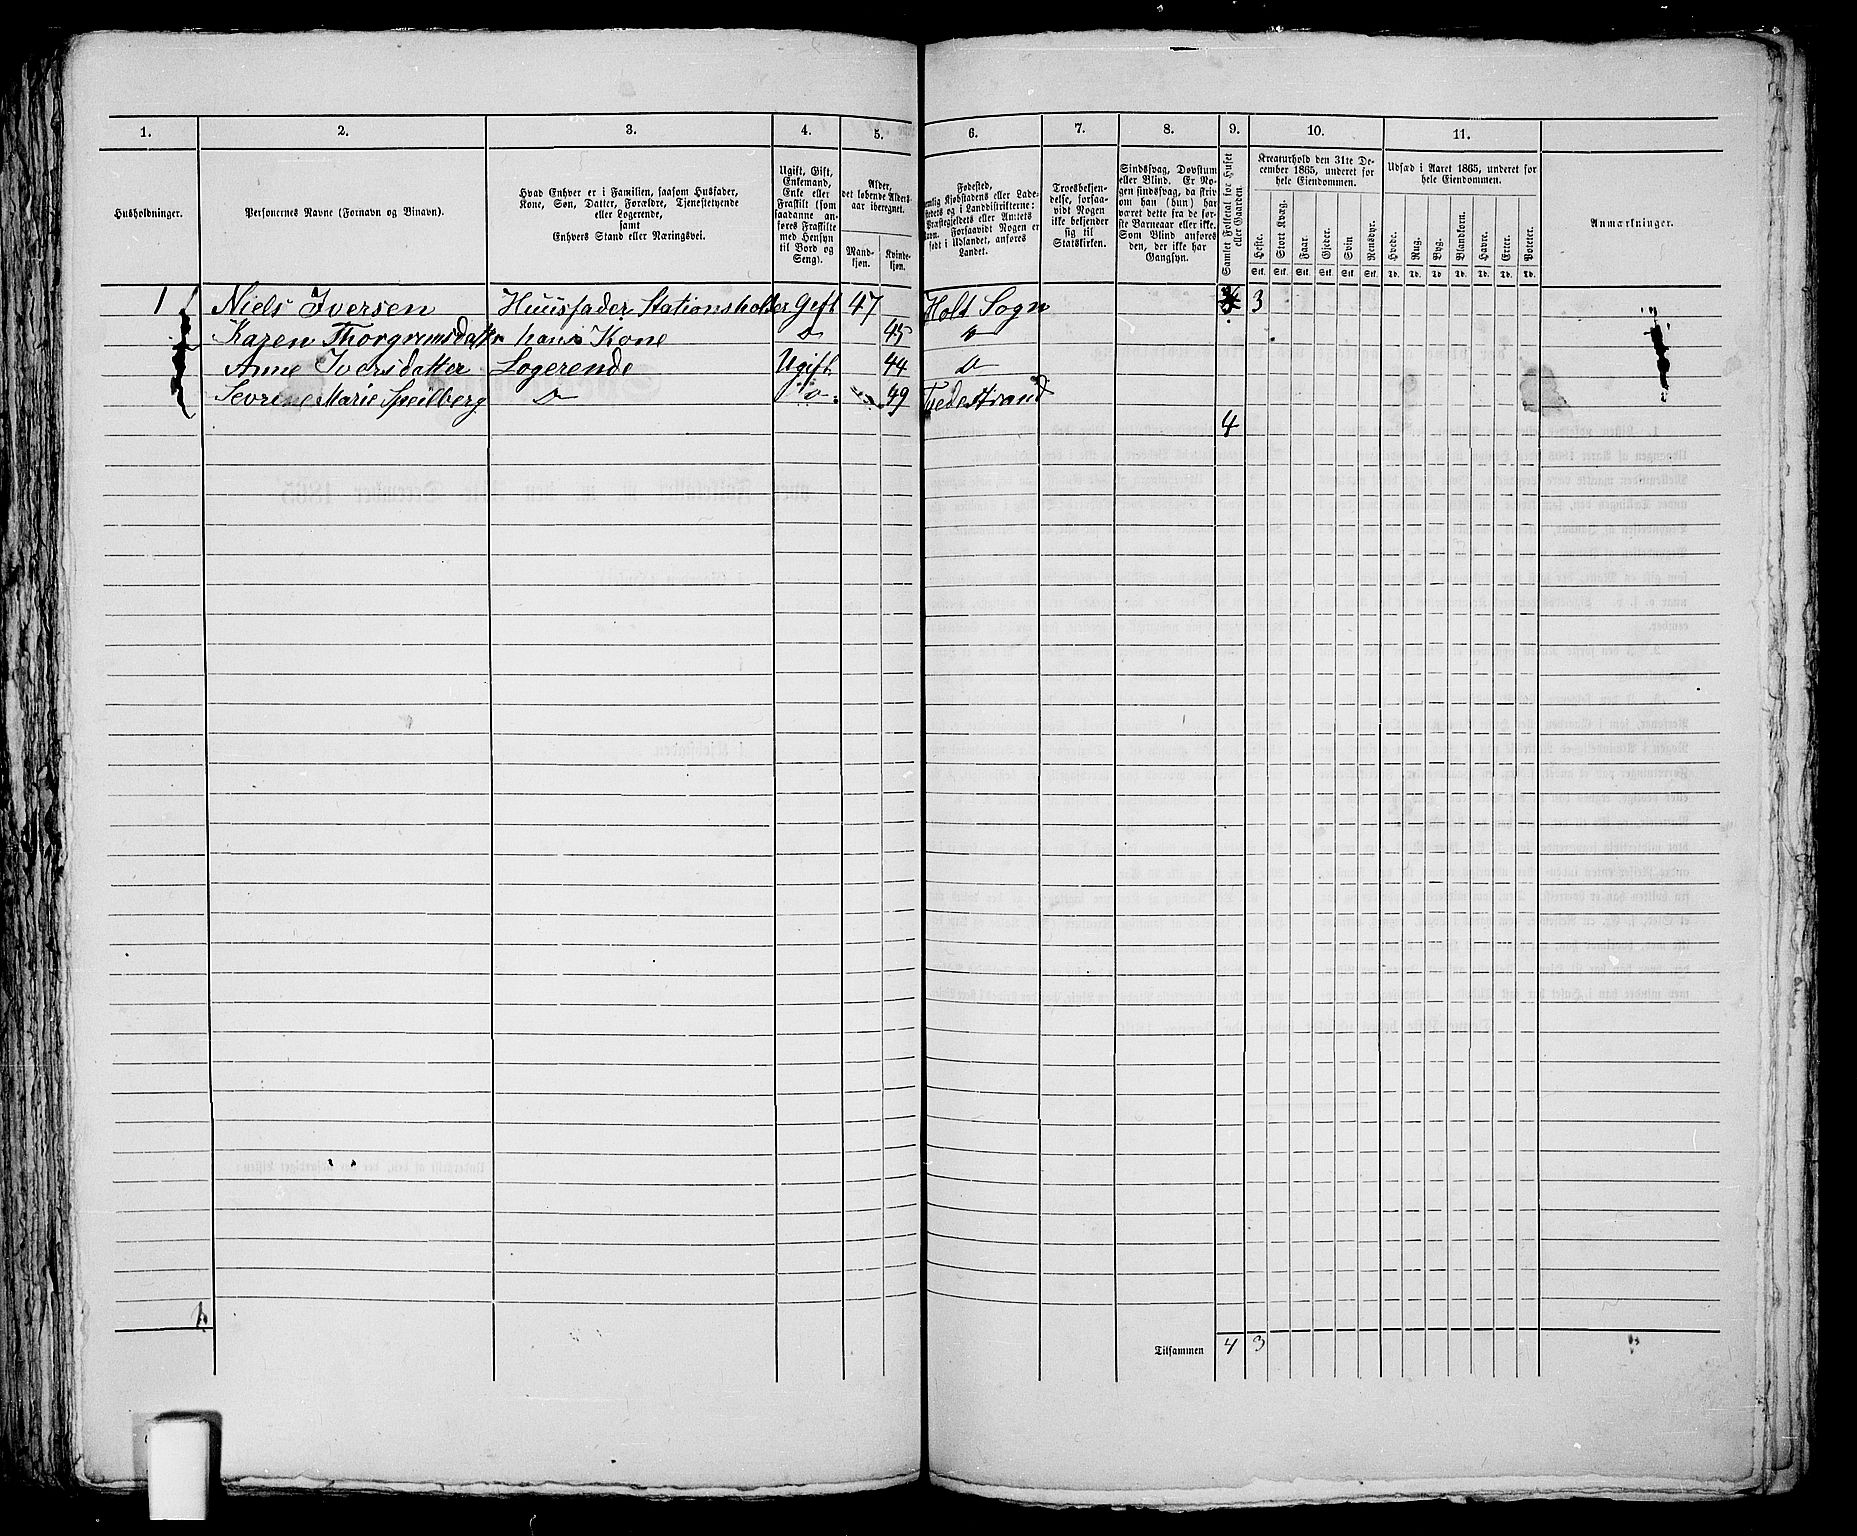 1. 2. 3. 4. 5. 6. 7. 8. 9. 10. 11.
Husholdninger.
Personernes Navne (Fornavn og Binavn).
Hvad Enhver er i Familien, saasom Husfader,
Kone, Søn, Datter, Forældre, Tjenestetyende
eller Logerende,
samt
Enhvers Stand eller Næringsvei.
Ugift, Gift,
Enkemand,
Enke eller
Fraskilt (som
saadanne an-
føres Fraskilte
med Hensyn
til Bord og
Seng).
Alder,
det løbende Alders-
aar iberegnet.
Mand-
kjøn.
Kvinde-
kjøn.
Fødested,
nemlig Kjøbstadens eller Lade-
stedets og i Landdistrikterne:
Præstegjeldets eller Amtets
Navn. Forsaavidt Nogen er
født i Udlandet, anføres
Landet.
Troesbekjen-
delse, forsaa-
vidt Nogen
ikke bekjender
sig til
Statskirken.
Sindssvag, Døvstum
eller Blind. Er No-
gen sindssvag, da skriv
om han (hun) har
været dette fra de før-
ste Barneaar eller ikke.
Som Blind anføres
den, der ikke har
Gangsyn.
Samlet Folketal for Huset
eller Gaarden.
Kreaturhold den 31te De-
cember 1865, underet for
hele Eiendommen.
Heste. Stort Kvæg. Faar. Gjeder. Svin Rensdyr.
Stk. Stk. Stk. Stk. Stk. Stk.
Udsæd i Aaret 1865, underet for
hele Eiendommen.
Hvede. Rug. Byg. Blandkorn. Havre. Erter. Poteter.
Td. Td. Td. Td. Td. Td. Td.
Anmærkninger.
1 Niels Iversen Huusfader Stationsholder Gift 47 Holt Sogn 3
Karen Thorgrimsdatter hans Kone do 45 do
Anne Iversdatter Logerende Ugift 44 do
Sevrine Marie Speilberg do do 49 Tvedestrand
4
1
Tilsammen 4 3